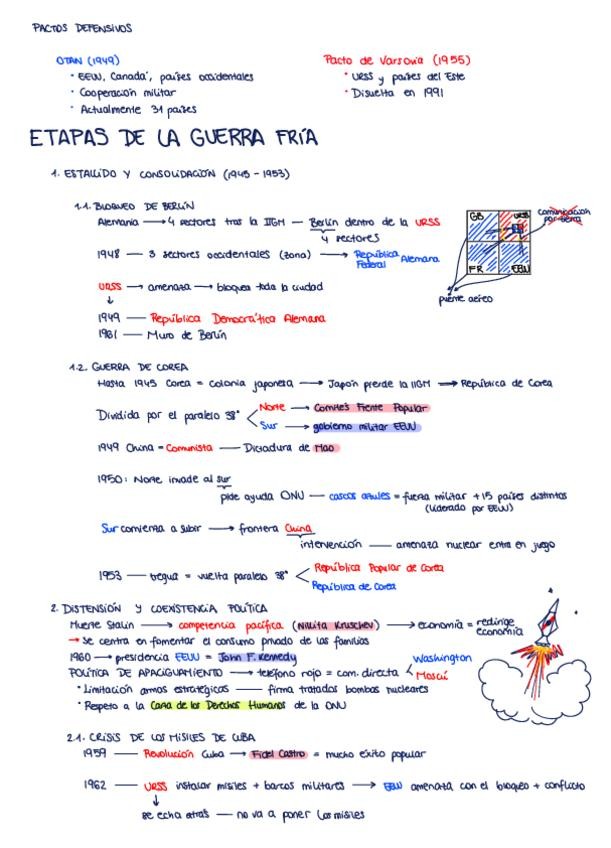 PACTOS DEFENSIVOS
OTAN (1949)
· EEUU, Canadá, países occidentales
· Cooperación militar
· Actualmente 31 países
Pacto de Varsovia (1955)
· URSS y países del Este
· Disuelta en 1991
ETAPAS DE LA GUERRA FRÍA
1. ESTALLIDO Y CONSOLIDACIÓN (1945 - 1953)
1.1. BLOQUEO DE BERLÍN
Alemania → 4 sectores tras la IIGM — Berlín dentro de la URSS
4 sectores
1948 — 3 sectores occidentales (zona) → República Federal Alemana
URSS → amenaza → bloquea toda la ciudad
↓
1949 — República Democrática Alemana
1961 — Muro de Berlín
GB URSS
FR EEUU
comunicación por tierra
puente aéreo
1.2. GUERRA DE COREA
Hasta 1945 Corea = colonia japonesa → Japón pierde la IIGM → República de Corea
Dividida por el paralelo 38°
Norte → Comités Frente Popular
Sur → gobierno militar EEUU
1949 China = Comunista — Dictadura de Mao
1950: Norte invade al sur
pide ayuda ONU — cascos azules = fuerza militar + 15 países distintos
(liderado por EEUU)
Sur comienza a subir → frontera China
intervención — amenaza nuclear entra en juego
1953 — tregua = vuelta paralelo 38°
República Popular de Corea
República de Corea
2. DISTENSIÓN Y COEXISTENCIA POLÍTICA
Muerte Stalin → competencia pacífica (Nikita Kruschev) → economía = redirige economía
→ se centra en fomentar el consumo privado de las familias
1960 → presidencia EEUU = John F. Kennedy
POLÍTICA DE APACIGUAMIENTO → teléfono rojo = com. directa
Washington
Moscú
· Limitación armas estratégicas — firma tratados bombas nucleares
· Respeto a la Carta de los Derechos Humanos de la ONU
2.1. CRISIS DE LOS MISILES DE CUBA
1959 — Revolución Cuba → Fidel Castro = mucho éxito popular
1962 — URSS instalar misiles + barcos militares → EEUU amenaza con el bloqueo + conflicto
↓
se echa atrás — no va a poner los misiles